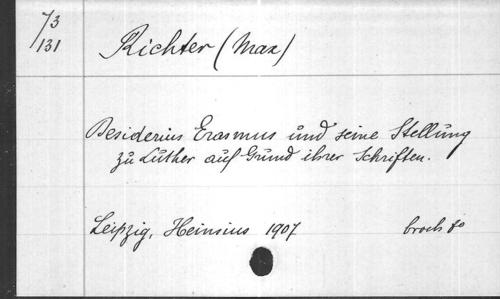 73
/131
Richter (Max)
Desiderius Erasmus und seine Stellung
zu Luther auf Grund ihrer Schriften.
Leipzig, Heinsius 1907 broch 8°